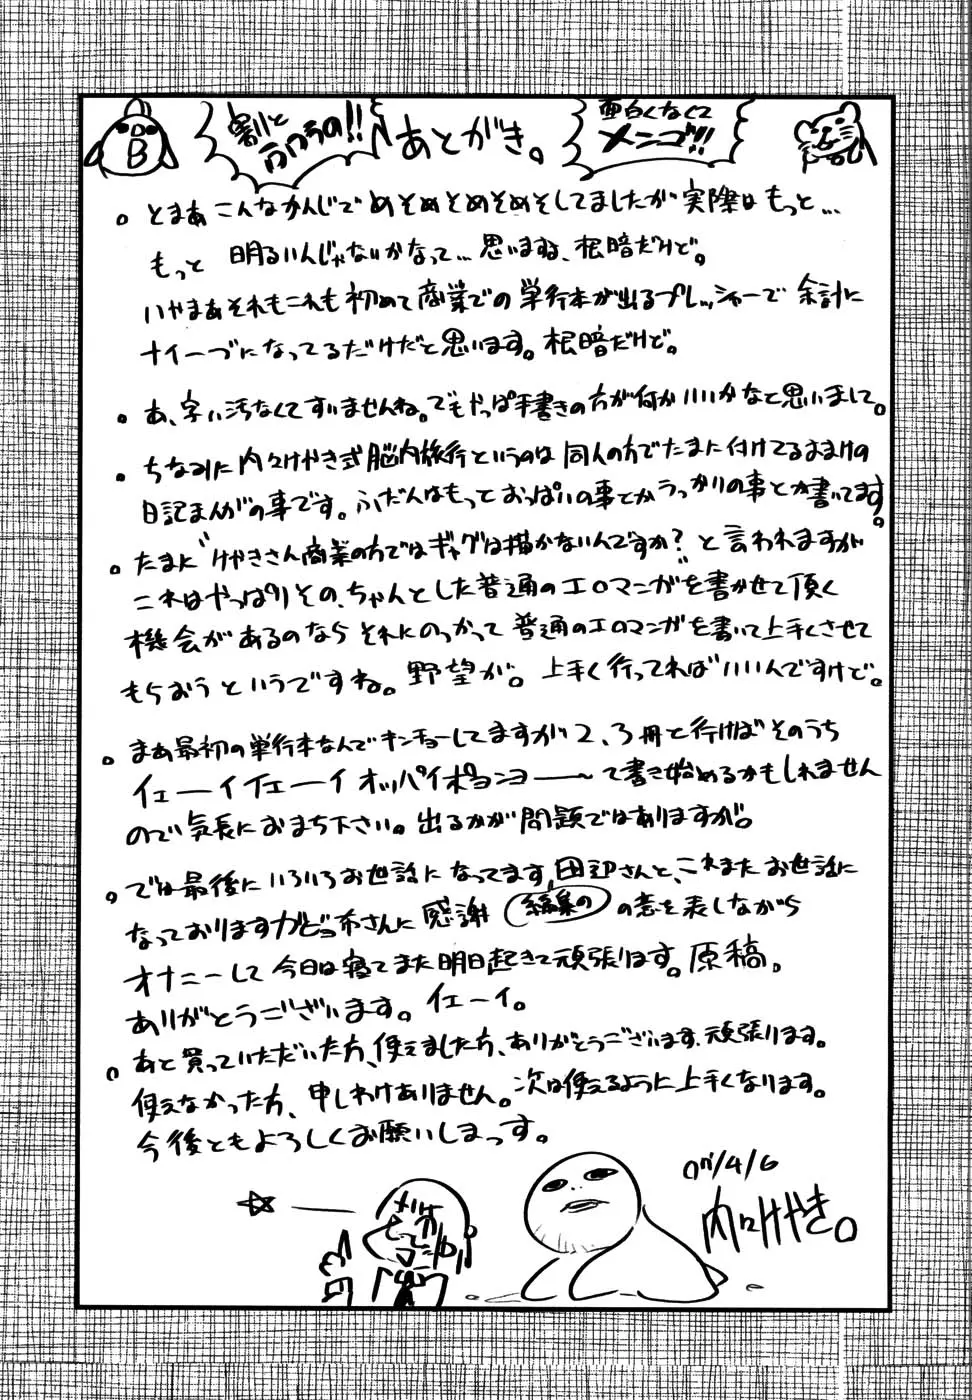 割と
フツウの!!
あとがき。
面白くなくて
メンゴ!!!
B
。とまあこんなかんじでめそめそめそめそしてましたが実際はもっと…
もっと 明るいんじゃないかなって…思いますね、根暗だけど。
いやまあそれもこれも初めて商業での単行本が出るプレッシャーで 余計に
ナイーブになってるだけだと思います。根暗だけど。
。あ、字ぃ汚なくてすいませんね。でもやっぱ手書きの方が何かいいかなと思いまして。
。ちなみに内々けやき式脳内旅行というのは同人の方でたまに付けてるおまけの
日記まんがの事です。ふだんはもっとおっぱいの事とかうっかりの事とか書いてます。
。たまに〝けやきさん商業の方ではギャグは描かないんですか?〟と言われますが
これはやっぱりその、ちゃんとした普通のエロマンガを書かせて頂く
機会があるのなら それにのっかって 普通のエロマンガを書いて上手くさせて
もらおうというですね。野望が。上手く行ってればいいんですけど。
。まあ最初の単行本なんでキンチョーしてますが2、3冊と行けばそのうち
イェーイイェーイオッパイポヨンヨー〜て書き始めるかもしれません
ので気長におまち下さい。出るかが問題ではありますが。
。では最後にいろいろお世話になってます田辺さんと、これまたお世話に
なっております さんに感謝 編集の の意を表しながら
オナニーして今日は寝てまた明日起きて頑張ります。原稿。
ありがとうございます。イェーイ。
。あと買っていただいた方、使えました方、ありがとうございます、頑張ります。
使えなかった方、申しわけありません。次は使えるように上手くなります。
今後ともよろしくお願いしまっす。
07/4/6
内々けやき。